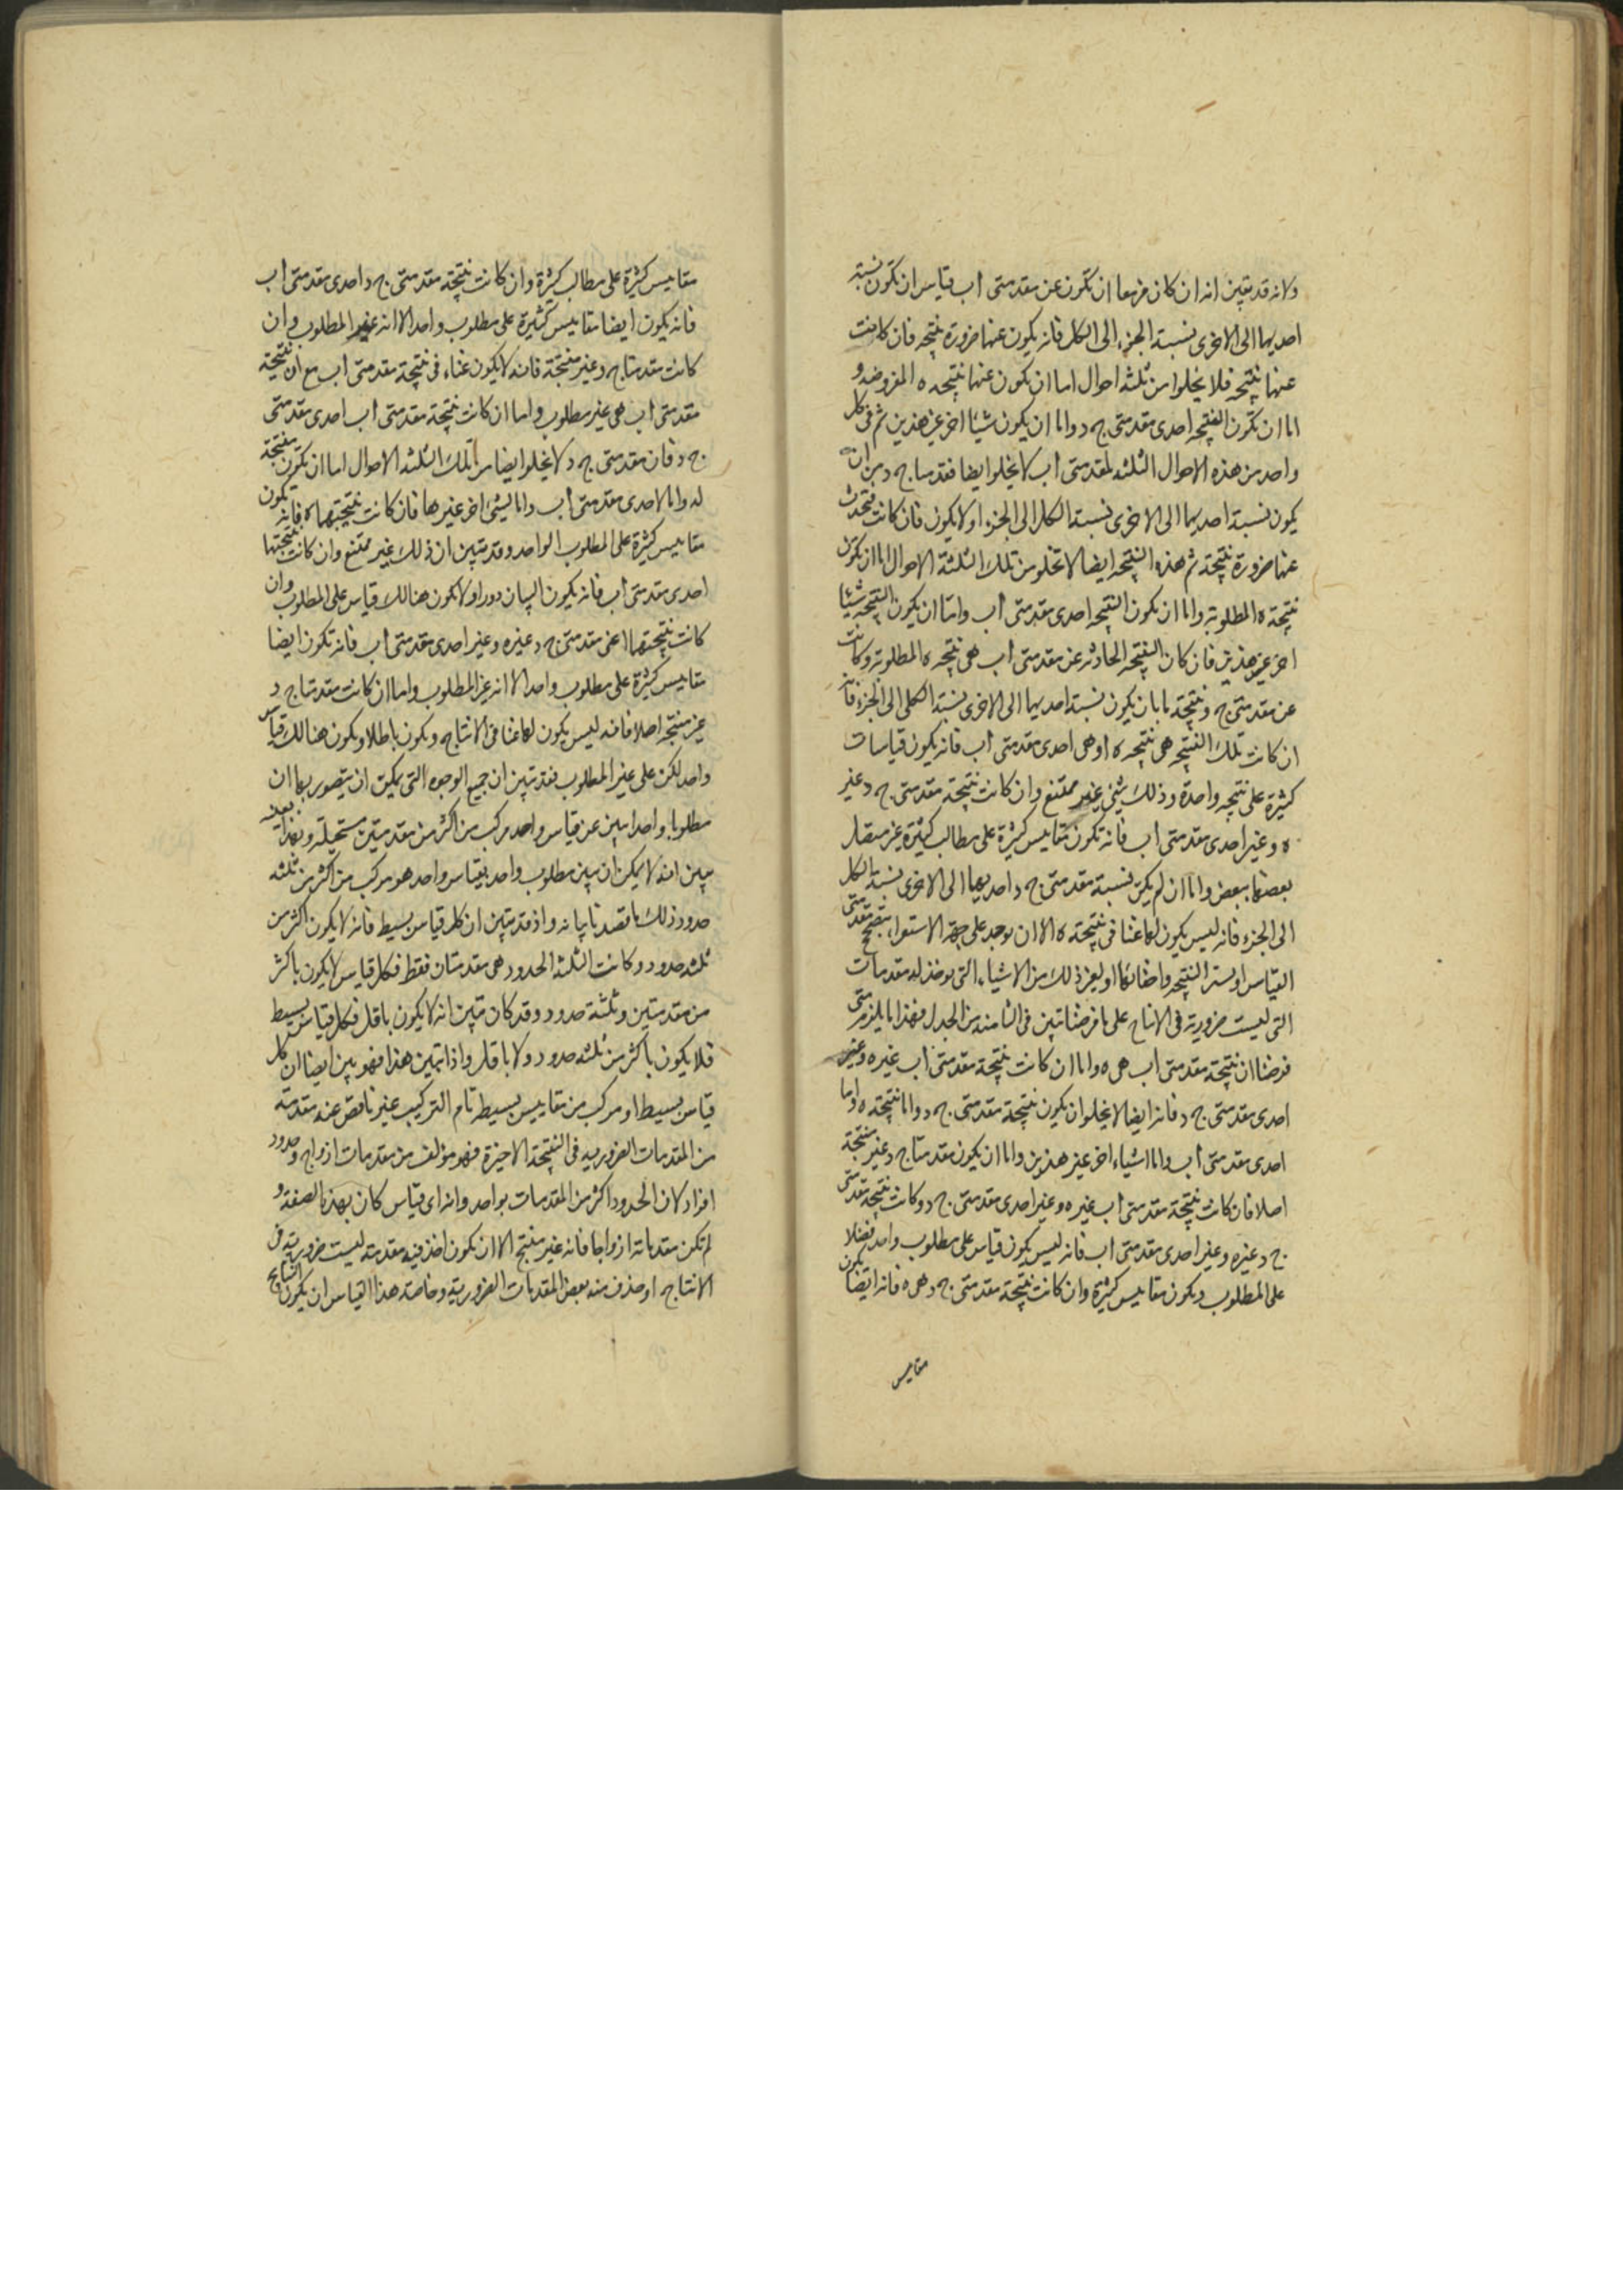 ولانه قد يتبين انه ان كان مزمعا ان تكون عن مقدمتى اب قياس ان تكون نسبة
احديهما الى الاخرى نسبة الجزء الى الكل فانه يكون عنها ضرورة نتيجه فان كانت
عنها نتيجه فلا يخلوا من ثلثه احوال اما ان تكون عنها نتيجه ه المفروضه و
اما ان تكون النتيجه احدى مقدمتى ج د واما ان يكون شيئا اخر غير هذين ثم فى كل
واحد من هذه الاحوال الثلثه لمقدمتى اب لا يخلوا ايضا فقدمتا ج د من ان
يكون نسبة احديهما الى الاخرى نسبة الكل الى الجزء اولا يكون فان كانت فتحدث
عنها ضرورة نتيجة ثم هذه النتيجه ايضا لا تخلو من تلك الثلثة الاحوال اما ان تكون
نتيجة ه المطلوبة واما ان يكون النتيجه احدى مقدمتى اب واما ان يكون النتيجه شيئا
اخر غير هذين فان كان النتيجه الحادثه عن مقدمتى اب هى نتيجه ه المطلوبة وكانت
عن مقدمتى ج د نتيجة ما بان يكون نسبة احديهما الى الاخرى نسبة الكلى الى الجزء فانه
ان كانت تلك النتيجه هى نتيجه ه او هى احدى مقدمتى اب فانه يكون قياسات
كثيرة على نتيجه واحدة وذلك شئ غير ممتنع وان كانت نتيجة مقدمتى ج د غير
ه وغير احدى مقدمتى اب فانه تكون مقاييس كثيرة على مطالب كثيرة غير متصل
بعضها ببعض واما ان لم يكن نسبة مقدمتى ج د احديهما الى الاخرى نسبة الكل
الى الجزء فانه ليس يكون لها غنا فى نتيجة ه الا ان يوجد على جهة الاستقراء بتصحيح مقدمتى
القياس او لستر النتيجه واخفائها او لغير ذلك من الاشياء التى يوخذ له مقدمات
التى ليست ضرورية فى الانتاج على ما فرضنا تبين فى الثامنه من الجدل فهذا ما يلزم متى
فرضنا ان نتيجة مقدمتى اب هى ه واما ان كانت نتيجة مقدمتى اب غيره وغير
احدى مقدمتى ج د فانه ايضا لا يخلو ان يكون نتيجة مقدمتى ج د واما نتيجة ه واما
احدى مقدمتى اب واما اشياء اخر غير هذين واما ان يكون مقدمتا ج د غير منتجة
اصلا فان كانت نتيجة مقدمتى اب غير ه وغير احدى مقدمتى ج د وكانت نتيجة مقدمتى
ج د غيره وغير احدى مقدمتى اب فانه ليس يكون قياس على مطلوب واحد فضلا
على المطلوب ويكون مقاييس كثيرة وان كانت نتيجة مقدمتى ج د هى ه فانه ايضا يكون
مقاييس
مقاييس كثيرة على مطالب كثيرة وان كانت نتيجة مقدمتى ج د احدى مقدمتى اب
فانه يكون ايضا مقاييس كثيرة على مطلوب واحد الا انه غير المطلوب وان
كانت مقدمتا ج د غير منتجة فانه لا يكون غناء فى نتيجة مقدمتى اب مع ان نتيجة
مقدمتى اب هى غير مطلوب واما ان كانت نتيجة مقدمتى اب احدى مقدمتى
ج د فان مقدمتى ج د لا يخلوا ايضا من تلك الثلثه الاحوال اما ان تكون منتجة
له واما لاحدى مقدمتى اب واما لشئ اخر غيرها فان كانت نتيجتهما ه فانه تكون
مقاييس كثيرة على المطلوب الواحد وقد تبين ان ذلك غير ممتنع وان كانت نتيجتها
احدى مقدمتى اب فانه يكون البيان دورا ولا يكون هنالك قياس على المطلوب وان
كانت نتيجتهما اعنى مقدمتى ج د غيره وغير احدى مقدمتى اب فانه تكون ايضا
مقاييس كثيرة على مطلوب واحد الا انه غير المطلوب واما ان كانت مقدمتا ج د
غير منتجه اصلا فانه ليس يكون لها غنا فى الانتاج ويكون باطلا ويكون هنالك قياس
واحد لكن على غير المطلوب فقد تبين ان جميع الوجوه التى يمكن ان يتصور بها ان
مطلوبا واحدا يبين عن قياس واحد مركب من اكثر من مقدمتين مستحيلة وبهذا بعينه
يبين انه لا يمكن ان يبين مطلوب واحد بقياس واحد هو مركب من اكثر من ثلثه
حدود وذلك ما قصدنا بيانه واذ قد تبين ان كل قياس بسيط فانه لا يكون اكثر من
ثلثه حدود وكانت الثلثه الحدود هى مقدمتان فقط فكل قياس لا يكون باكثر
من مقدمتين وثلثة حدود وقد كان تبين انه لا يكون باقل فكل قياس بسيط
فلا يكون باكثر من ثلثه حدود ولا باقل واذا تبين هذا فهو بين ايضا ان كل
قياس بسيط او مركب من مقاييس بسيطه تام التركيب غير ناقص عنه مقدمة
من المقدمات الضروريه فى النتيجة الاخيرة فهو مؤلف من مقدمات ازواج وحدود
افراد لان الحدود اكثر من المقدمات بواحد وانه اى قياس كان بهذه الصفة و
لم تكن مقدماته ازواجا فانه غير منتج الا ان يكون اخذ فيه مقدمة ليست ضرورية فى
الانتاج او حذف منه بعض المقدمات الضرورية وخاصة هذا القياس ان يكون نتائج